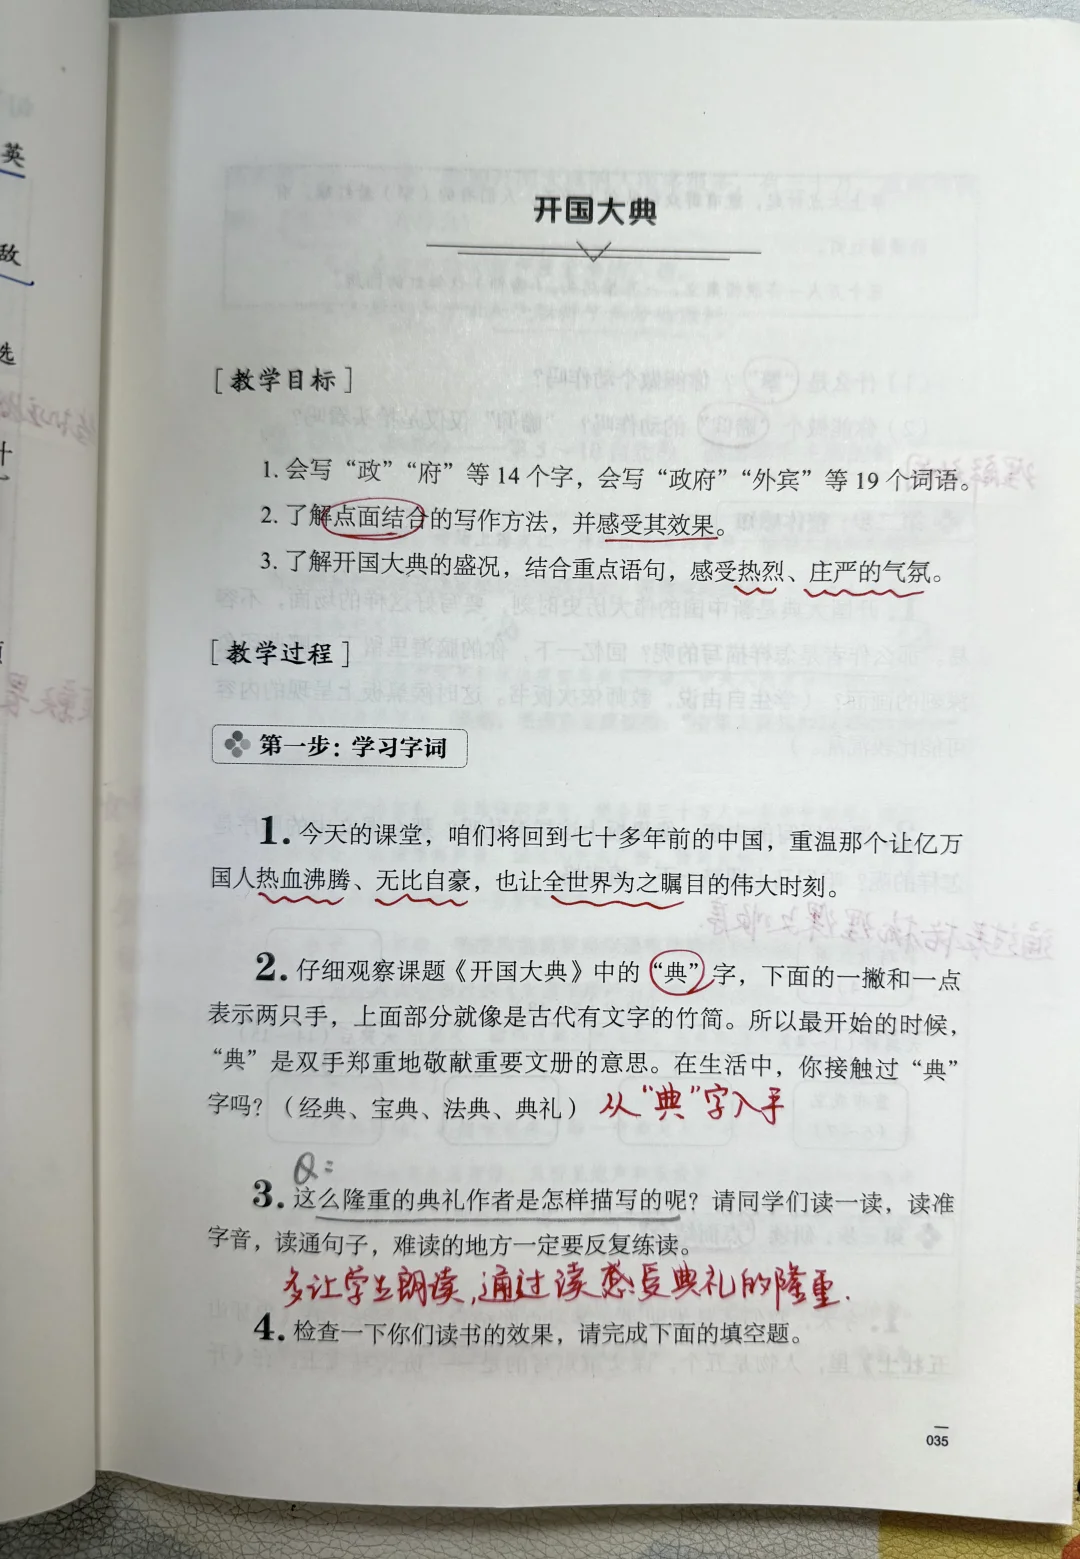 英
敌
选
开国大典
[教学目标]
1. 会写“政”“府”等14个字，会写“政府”“外宾”等19个词语。
2. 了解点面结合的写作方法，并感受其效果。
3. 了解开国大典的盛况，结合重点语句，感受热烈、庄严的气氛。
[教学过程]
第一步：学习字词
1. 今天的课堂，咱们将回到七十多年前的中国，重温那个让亿万
国人热血沸腾、无比自豪，也让全世界为之瞩目的伟大时刻。
2. 仔细观察课题《开国大典》中的“典”字，下面的一撇和一点
表示两只手，上面部分就像是古代有文字的竹简。所以最开始的时候，
“典”是双手郑重地敬献重要文册的意思。在生活中，你接触过“典”
字吗？（经典、宝典、法典、典礼） 从“典”字入手
Q：
3. 这么隆重的典礼作者是怎样描写的呢？请同学们读一读，读准
字音，读通句子，难读的地方一定要反复练读。
多让学生朗读，通过读感受典礼的隆重.
4. 检查一下你们读书的效果，请完成下面的填空题。
035